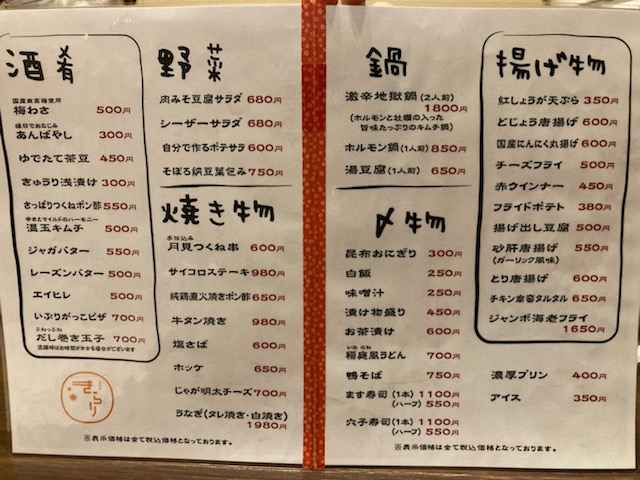 酒肴
国産南高梅使用
梅わさ 500円
縁日でおなじみ
あんばやし 300円
ゆでたて茶豆 450円
きゅうり浅漬け 300円
さっぱりつくねポン酢 550円
辛さとマイルドのハーモニー
温玉キムチ 500円
ジャガバター 550円
レーズンバター 550円
エイヒレ 500円
いぶりがっとピザ 700円
ふわっふわ
だし巻き玉子 700円
きらり
野菜
肉みそ豆腐サラダ 680円
シーザーサラダ 680円
自分で作るポテサラ 600円
そぼろ納豆葉包み 750円
焼き物
手仕込み
月見つくね串 600円
サイコロステーキ 980円
純鶏直火焼きポン酢 650円
牛タン焼き 980円
塩さば 600円
ホッケ 650円
じゃが明太チーズ 700円
うなぎ(タレ焼き・白焼き)
1980円
※表示価格は全て税込価格となっております。
鍋
激辛地獄鍋(2人前)
1800円
(ホルモンと牡蠣の入った
旨味たっぷりのキムチ鍋)
ホルモン鍋(1人前) 850円
湯豆腐(1人前) 650円
〆物
昆布おにぎり 300円
白飯 250円
味噌汁 250円
漬け物盛り 400円
お茶漬け 600円
いなにわ
稲庭風うどん 700円
鴨そば 750円
ます寿司(1本) 1100円
(ハーフ) 550円
穴子寿司(1本) 1100円
(ハーフ) 550円
揚げ物
紅しょうが天ぷら 350円
どじょう唐揚げ 600円
国産にんにく丸揚げ 600円
チーズフライ 500円
赤ウインナー 450円
フライドポテト 380円
揚げ出し豆腐 500円
砂肝唐揚げ 550円
(ガーリック風味)
とり唐揚げ 600円
チキン南蛮タルタル 650円
ジャンボ海老フライ
1650円
濃厚プリン 400円
アイス 350円
※表示価格は全て税込価格となっております。